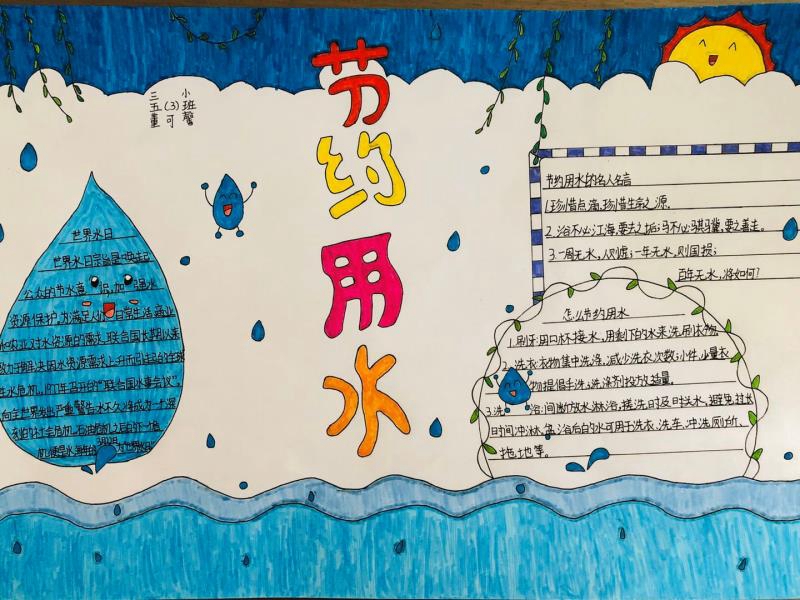 节约用水
三小
五(3)班
董可馨
世界水日
世界水日宗旨是唤起
公众的节水意识,加强水
资源保护,为满足人们日常生活,商业
和农业对水资源的需求,联合国长期以来
致力于解决因水资源需求上升而引起的全球
性水危机,1977年召开的“联合国水事会议”,
向全世界发出严重警告水不久将成为一个深
刻的社会危机,石油危机之后的下一个
危机便是水
节约用水的名人名言
1.珍惜点滴,珍惜生命之源.
2.浴不必江海,要去之垢;马不必骐骥,要之善走.
3.一周无水,人则虚;一年无水,则国损;
百年无水,将如何?
怎么节约用水
1.刷牙:用口杯接水,用剩下的水来洗刷衣物.
2.洗衣:衣物集中洗涤,减少洗衣次数;小件,少量衣
物提倡手洗;洗涤剂投放适量.
3.洗浴:间断放水淋浴,搓洗时及时关水,避免过长
时间冲淋,盆浴后白的水可用于洗衣、洗车、冲洗厕所、
拖地等.